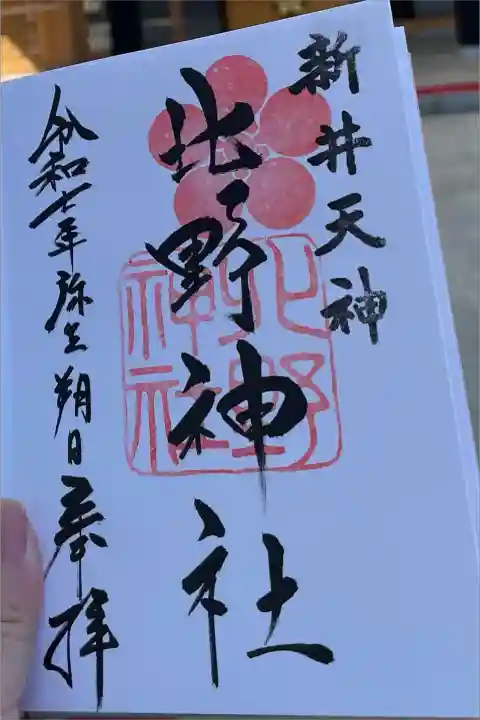 新井天神
北野神社
北野
神社
令和七年弥生朔日奉拝